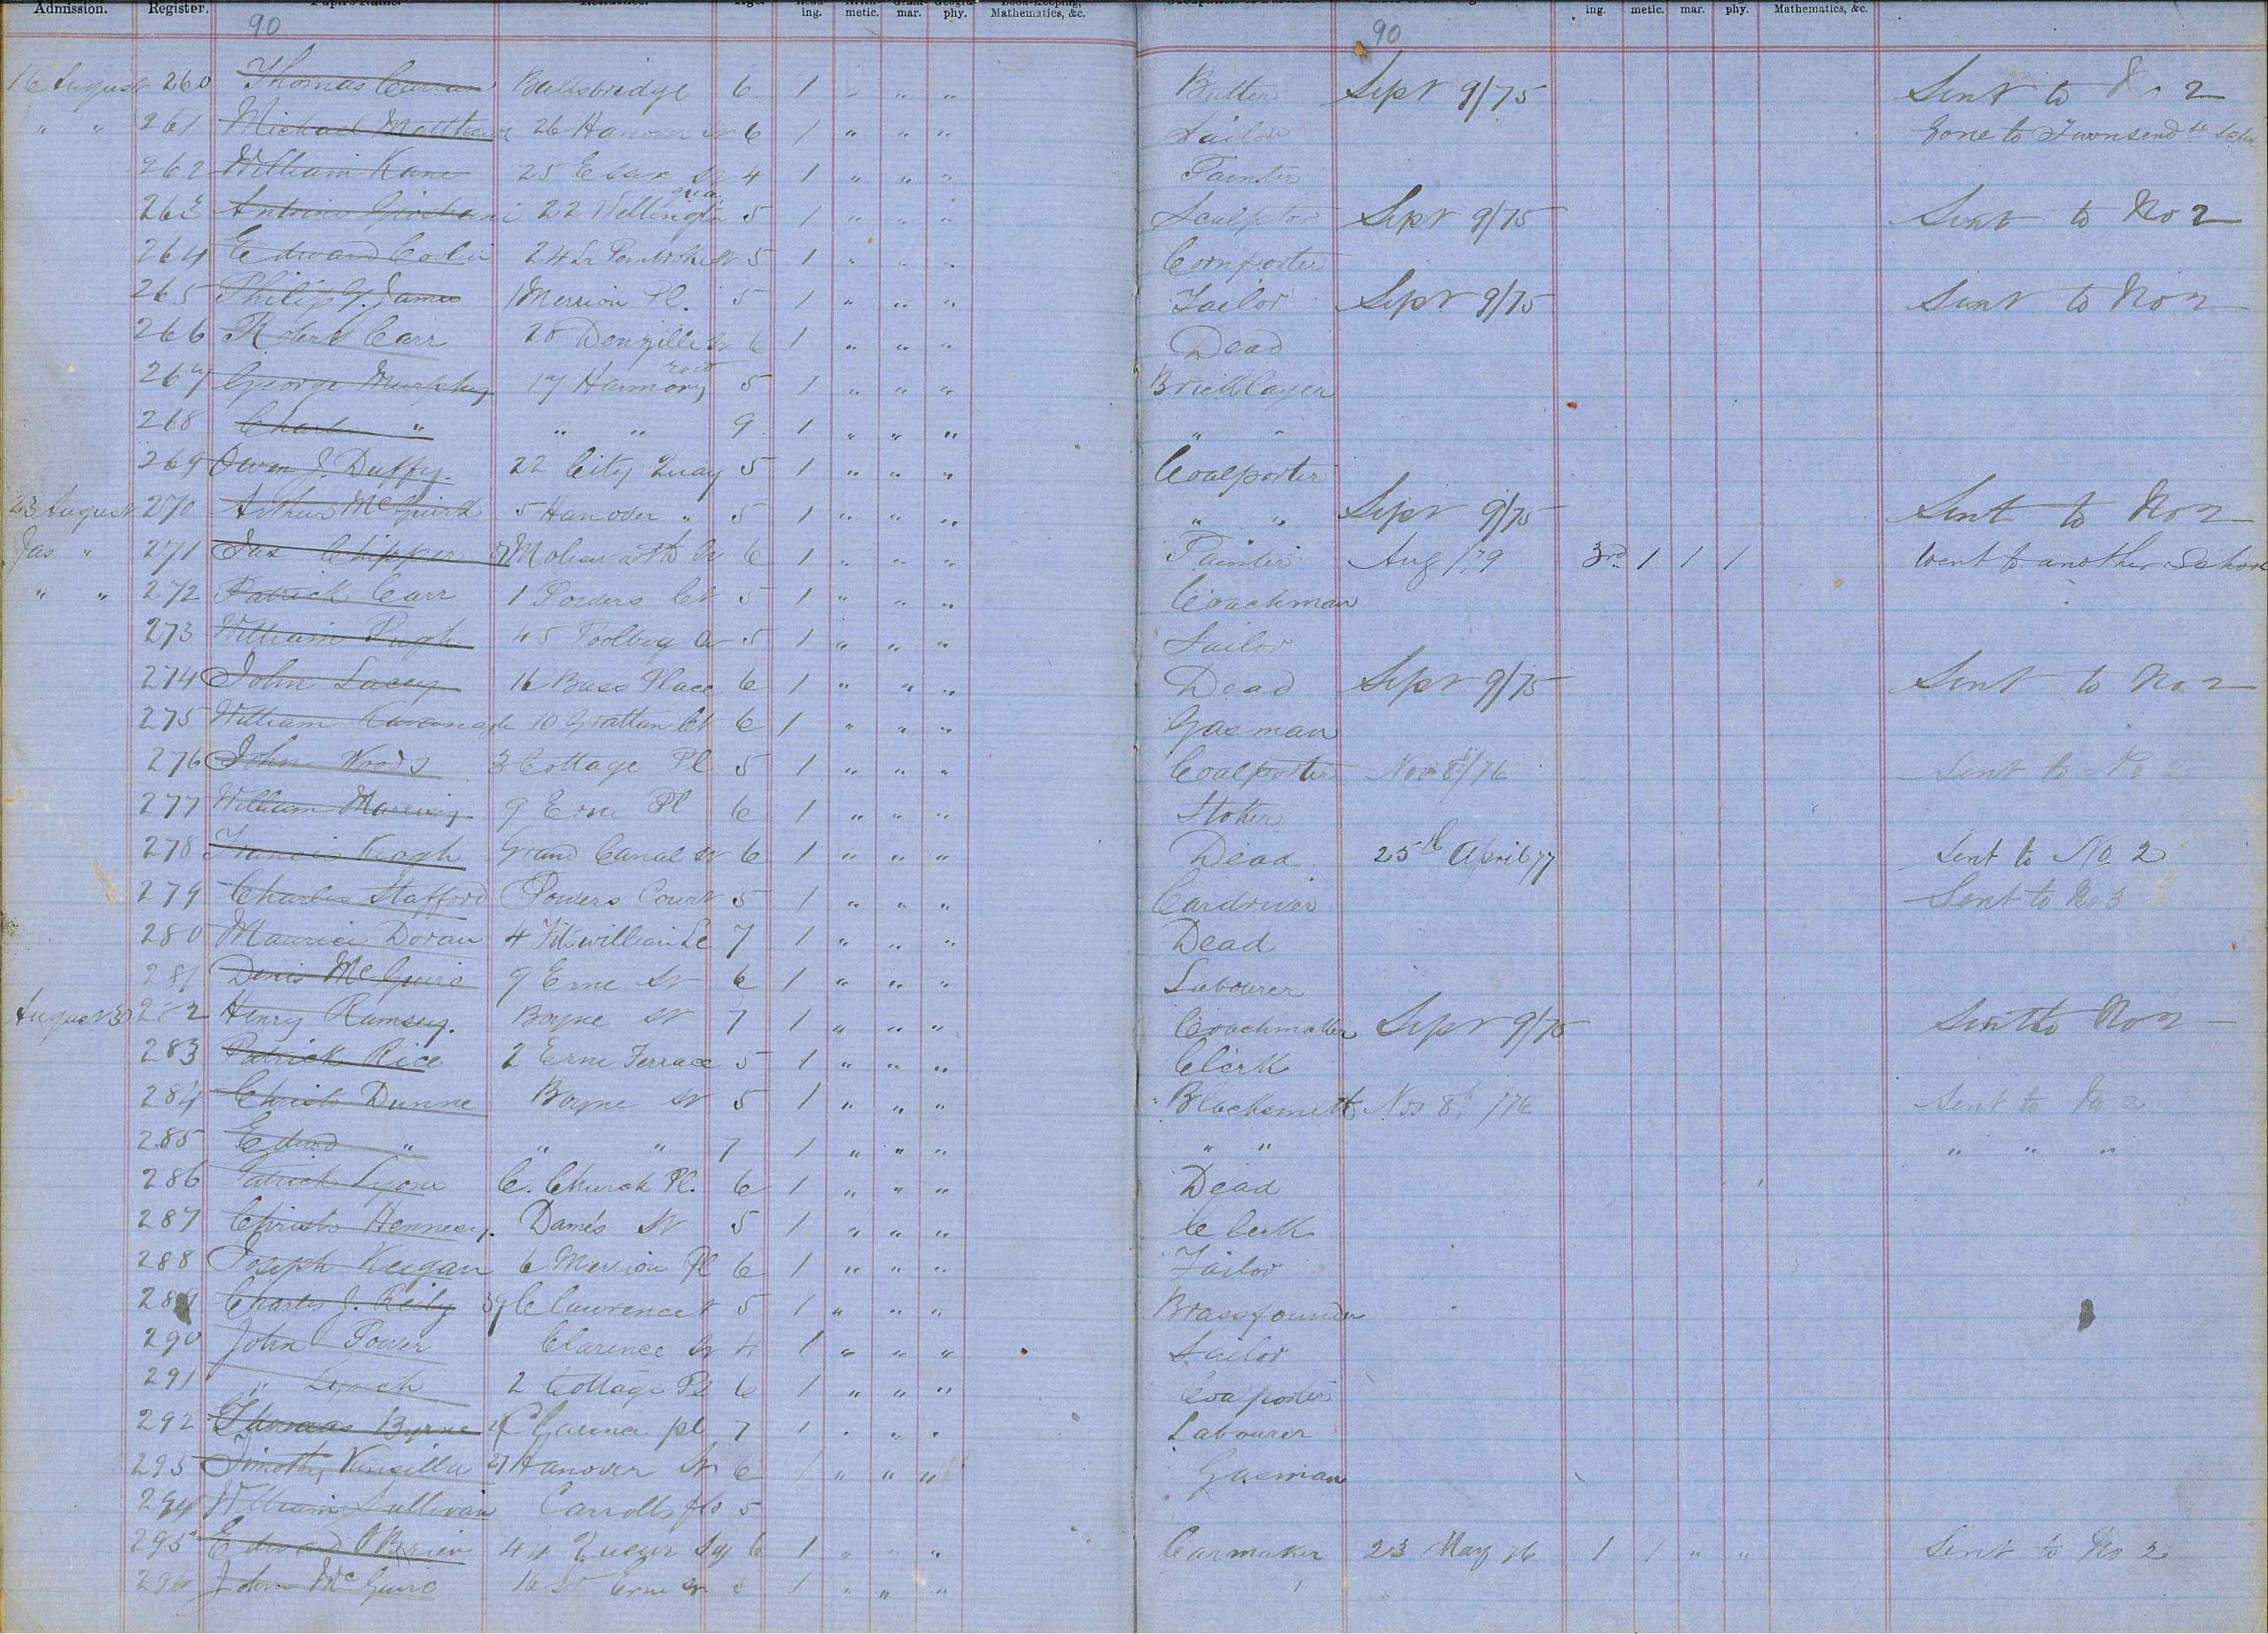 Admission. Register. Pupil's Name. Residence. Age. ing. metic. mar. phy. Mathematics, &c. ing. metic. mar. phy. Mathematics, &c.
90 90
16 August 260 Thomas Curran Ballsbridge 6 1 " " " Butler Sept 9/75 Sent to No 2
" " 261 Michael Matthews 26 Hanover St 6 1 " " " Sailor Gone to Townsend St
262 William Kane 25 Essex St 4 1 " " " Painter
263 22 Wellington quay 5 1 " " " Sculptor Sept 9/75 Sent to No 2
264 Edward 24 Lr Pembroke St 5 1 " " " Cornporter
265 Philip J. James 1 Merrion Pl. 5 1 " " " Tailor Sept 9/75 Sent to No 2
266 Robert Carr 20 Denzille St 6 1 " " " Dead
267 George Murphy 17 Harmony row 5 1 " " " Bricklayer
268 Charles " " " 9 1 " " " " "
269 Owen J. Duffy. 22 City Quay 5 1 " " " Coalporter
23 August 270 Arthur McGuirk 5 Hanover " 5 1 " " " " " Sept 9/75 Sent to No 2
Jas " 271 Jas Chipper Molesworth St 6 1 " " " Painter Aug /79 3rd 1 1 1 Went to another School
" " 272 Patrick Carr 1 Powers Ct 5 1 " " " Coachman
273 William Pugh 45 Poolbeg St 5 1 " " " Sailor
274 John Lacey 16 Bass Place 6 1 " " " Dead Sept 9/75 Sent to No 2
275 William Kavanagh 10 Grattan Ct 6 1 " " " Gasman
276 John Woods 3 Cottage Pl 5 1 " " " Coalporter Nov 8th/76 Sent to No 2
277 William 9 Erne Pl 6 1 " " " Stoker
278 Francis Keogh Grand Canal St 6 1 " " " Dead 25th April 77 Sent to No. 2
279 Charles Stafford Powers Court 5 1 " " " Cardriver Sent to No 3
280 Maurice Doran 4 Fitzwilliam Le 7 1 " " " Dead
281 Denis McGuire 9 Erne St 6 1 " " " Labourer
August 30 282 Henry Ramsey. Boyne St 7 1 " " " Coachmaker Sept 9/75 Sent to No 2
283 Patrick Rice 2 Erne Terrace 5 1 " " " Clerk
284 Christr Dunne Boyne St 5 1 " " " Blacksmith Nov 8th /76 Sent to No 2
285 Edwd " " " 7 1 " " " " " " " "
286 Patrick Lyons C. Church Pl. 6 1 " " " Dead
287 Christr Hennesy. Dame's St 5 1 " " " Clerk
288 Joseph Keegan 6 Merrion Pl 6 1 " " " Tailor
289 Charles J. Reily 39 Clarence St 5 1 " " " Brassfounder
290 John Power Clarence St 4 1 " " " Sailor
291 " Lynch 2 Cottage Pl 6 1 " " " Coalporter
292 Thomas Byrne pl 7 1 " " " Labourer
293 Timothy Kinsilla 27 Hanover St 6 1 " " " Gasman
294 William Sullivan 5
295 Edward O'Brien 4 Sq 6 1 " " " Carmaker 23 May 76 1 1 " " Sent to No 2
296 John McGuire Erne St 1 " " "